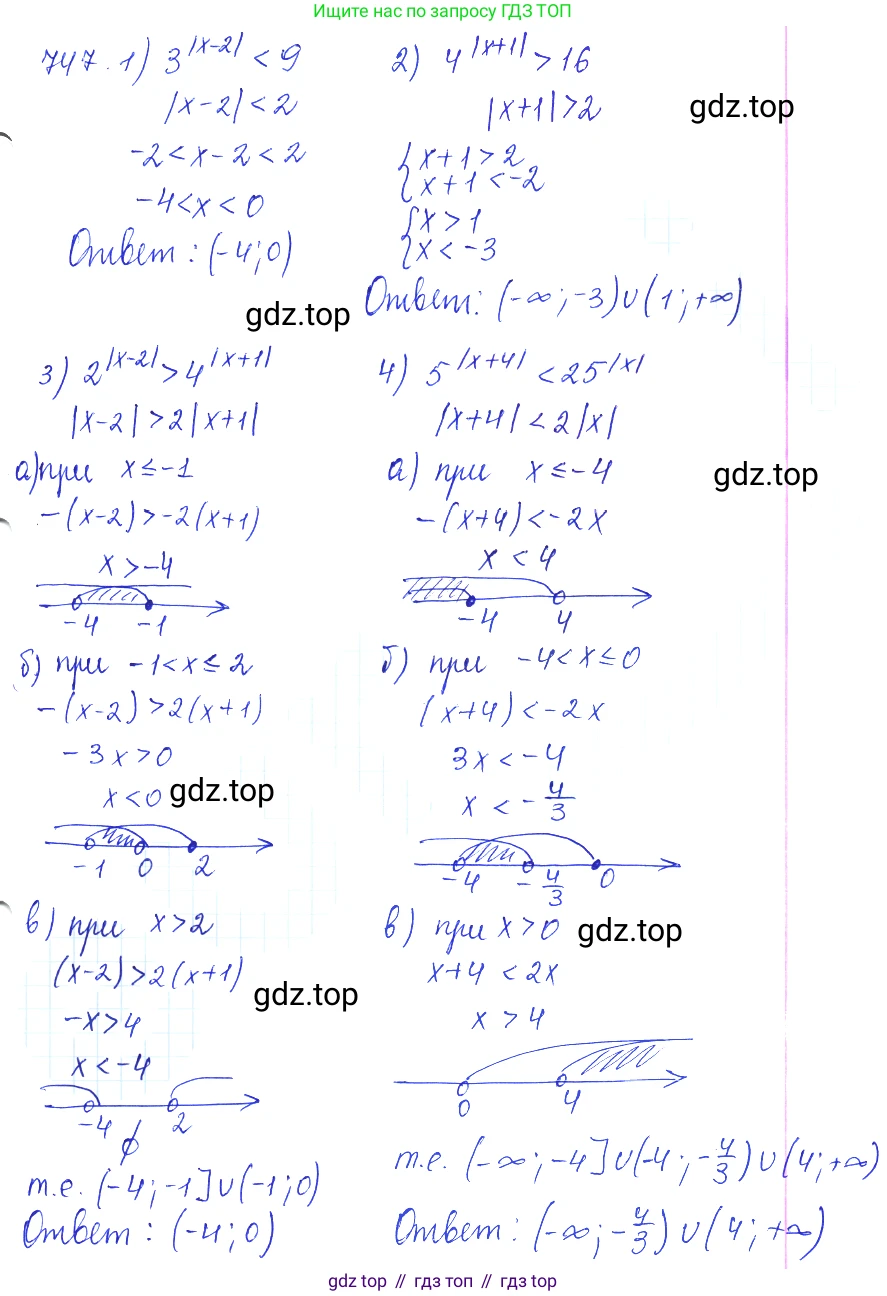 Ищите нас по запросу ГДЗ ТОП
747. 1) 3^|x-2| < 9
|x-2| < 2
-2 < x-2 < 2
-4 < x < 0
Ответ: (-4; 0)
2) 4^|x+1| > 16
|x+1| > 2
{ x+1 > 2
{ x+1 < -2
{ x > 1
{ x < -3
Ответ: (-∞; -3) ∪ (1; +∞)
gdz.top
gdz.top
3) 2^|x-2| > 4^|x+1|
|x-2| > 2|x+1|
а) при x ≤ -1
-(x-2) > -2(x+1)
x > -4
-4 -1
б) при -1 < x ≤ 2
-(x-2) > 2(x+1)
-3x > 0
x < 0
gdz.top
-1 0 2
в) при x > 2
(x-2) > 2(x+1)
gdz.top
-x > 4
x < -4
-4 2
∅
т.е. (-4; -1] ∪ (-1; 0)
Ответ: (-4; 0)
4) 5^|x+4| < 25^|x|
|x+4| < 2|x|
а) при x ≤ -4
gdz.top
-(x+4) < -2x
x < 4
-4 4
б) при -4 < x ≤ 0
(x+4) < -2x
3x < -4
x < -4/3
-4 -4/3 0
в) при x > 0
gdz.top
x+4 < 2x
x > 4
0 4
т.е. (-∞; -4] ∪ (-4; -4/3) ∪ (4; +∞)
Ответ: (-∞; -4/3) ∪ (4; +∞)
gdz top // гдз топ // gdz top